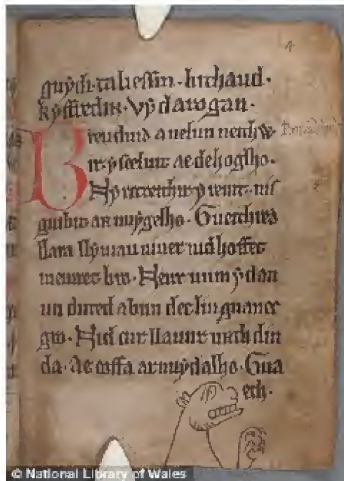 guẏdi taliessin · bithaud ·
kẏffredin · vẏ darogan ·
Breuduid a uelun neithw
ir · ẏs celuit ae dehoglho ·
Nẏ ritreithir ẏ reuit · nis
guibit ar nuẏgelho · Gueithred
llara llẏuiau niuer nid hoffet
meuret bro · Neur uum ẏ dan
un duted a bun dec liu guanec
gro · Nid eur llauur urth din
da · Ae coffa arnuẏ dalho · Gua
eth ·
© National Library of Wales